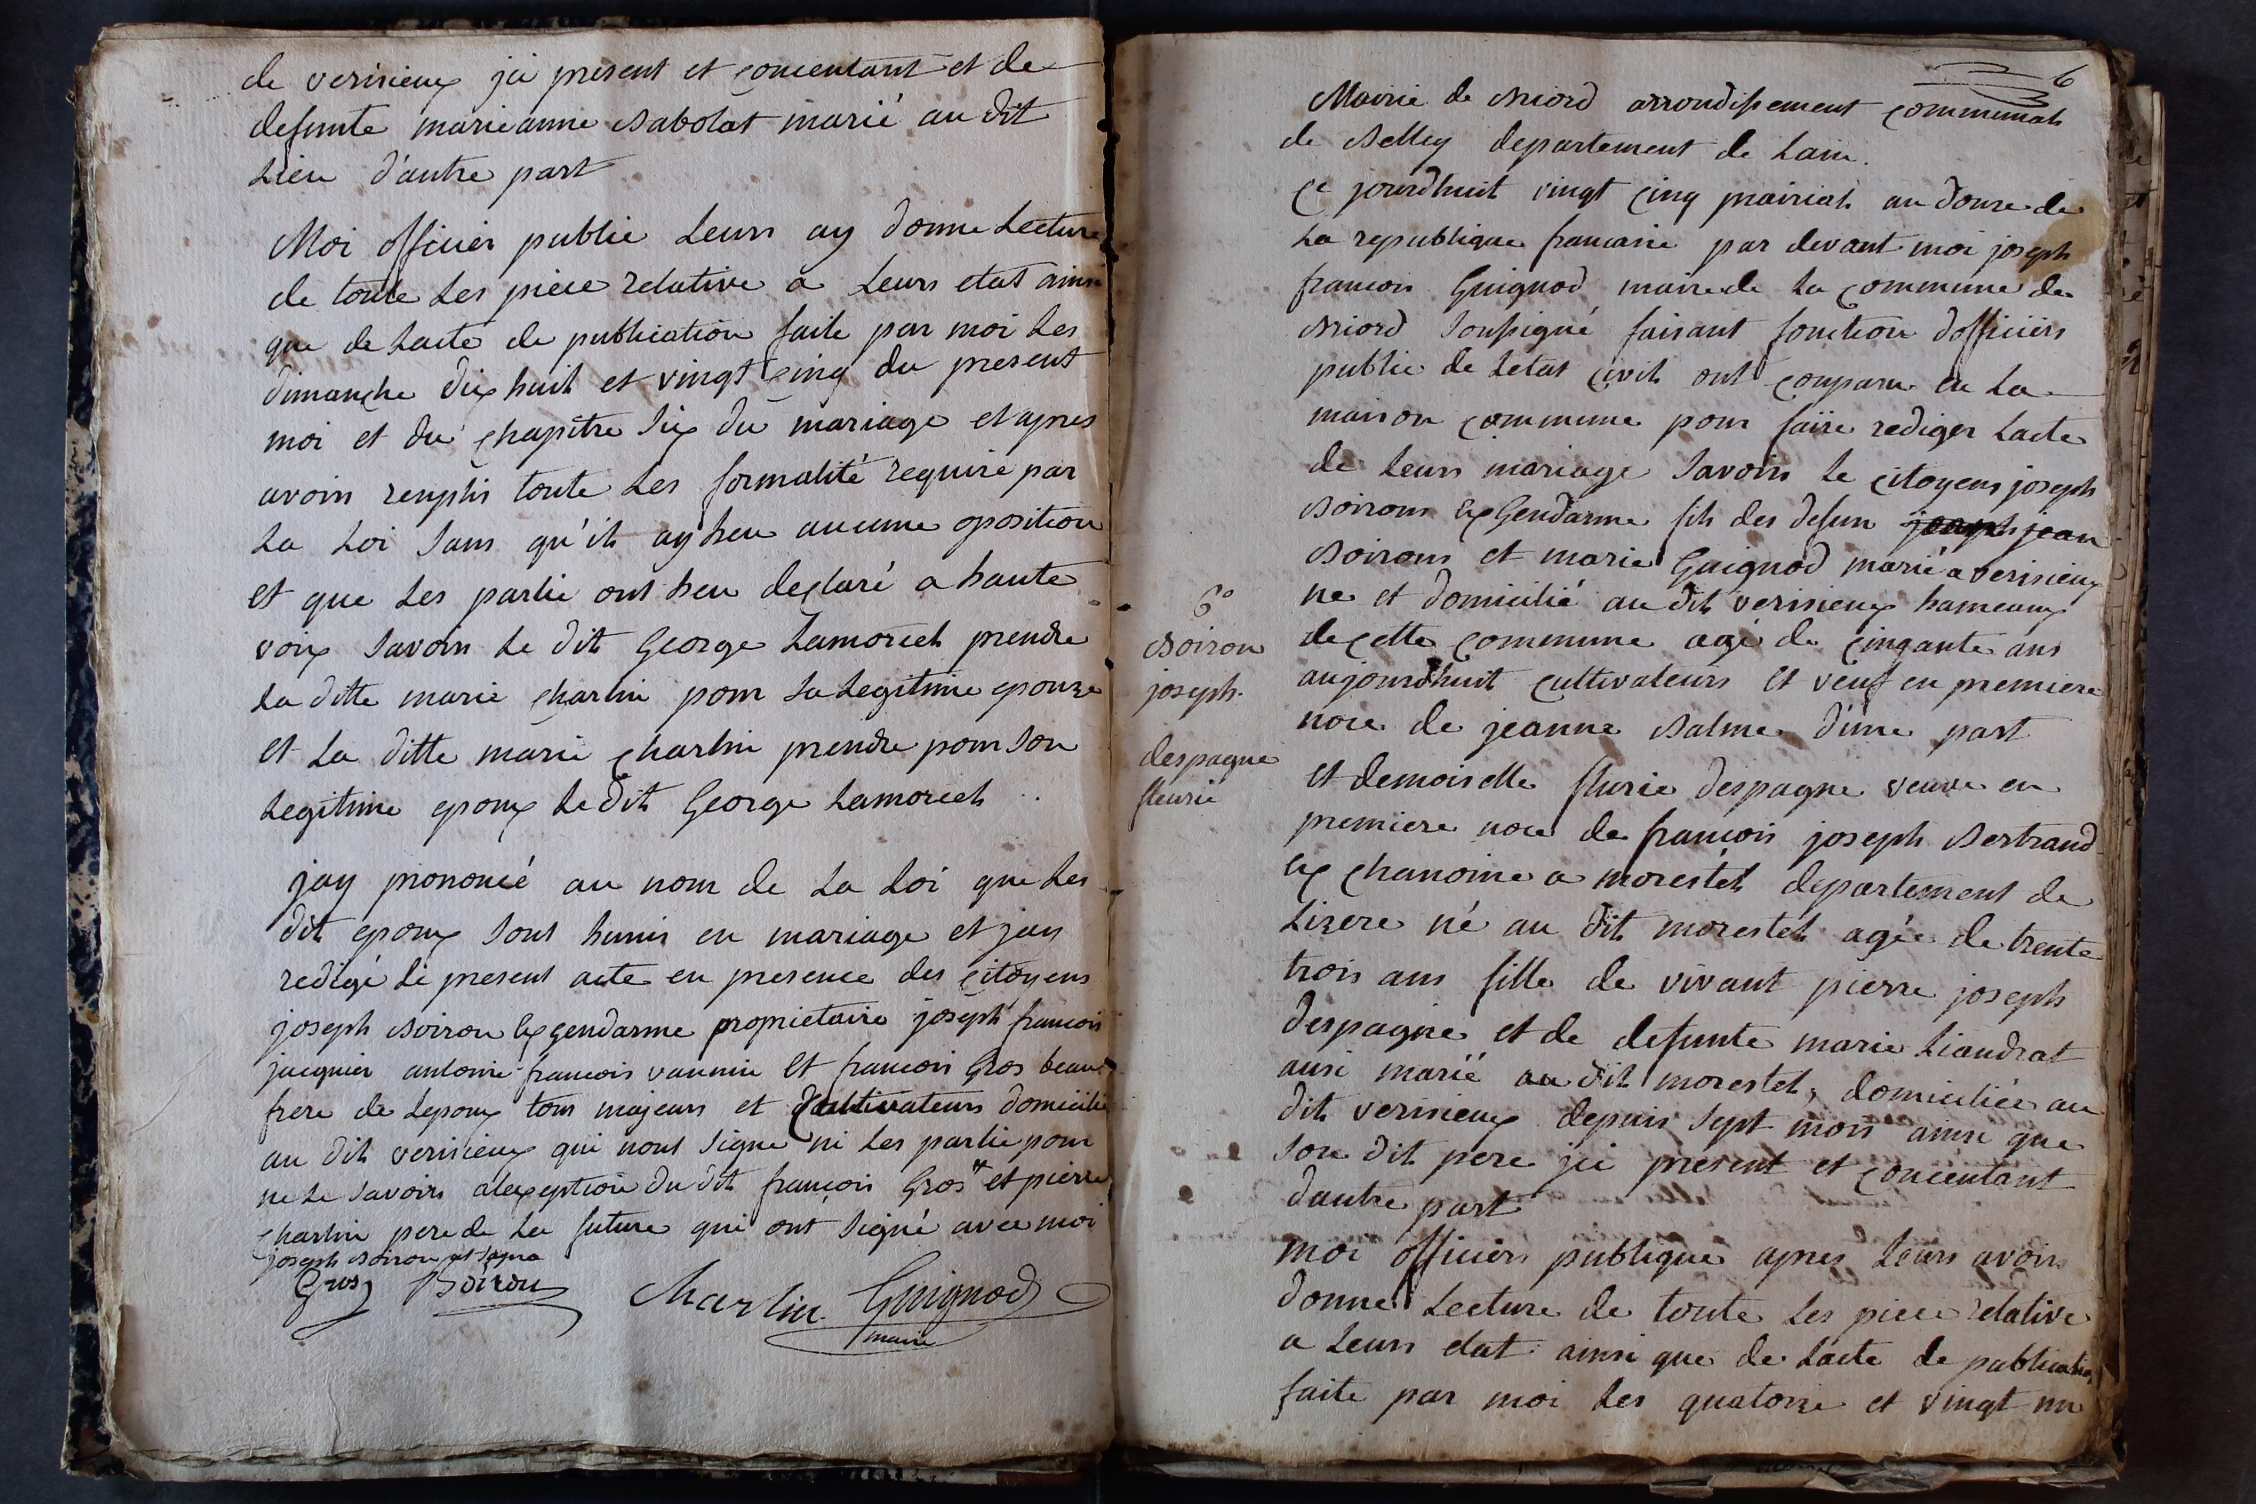 de verisieux jci present et concentant et de
defunte marieanne Babolat marié au dit
Lieu d'autre part
Moi officier public Leurs ay donne Lecture
de toute Les piece relative a Leurs etat ainsi
que de Lacte de publication faite par moi Les
dimanche dix huit et vingt cinq du present
moi et du chapitre six du mariage et apres
avoirs remplis toute Les formalité require par
La Loi sans qu'il ay heu aucune oposition
et que Les partie ont heu declaré a haute
voix savoirs Le dit George Lamorech prendre
La ditte marie charlin pour sa Legitime epouze
et La ditte marie charlin prendre pour son
Legitime epoux Le dit George Lamorech
jay prononcé au nom de La Loi que Les
dit epoux sont hunis en mariage et jay
redigé Le present acte en presence des citoyens
joseph Boiron Ex gendarme proprietaire joseph francois
jacquier antoine francois vannin et francois Gros beau
frere de Lepoux tous majeurs et cultivateurs domicilié
au dit verisieux qui nont signe ni Les partie pour
ne Le savoirs alexception du dit françois Gros et pierre
charlin pere de La future qui ont signé avec moi
joseph Boiron et
Gros Boiron Charlin Guignod
maire
6
Mairie de Briord arrondissement communal
de Belley departement de Lain.
Ce jourdhuit vingt cinq prairial an douze de
La republique francaise par devant moi joseph
francois Guignod maire de La commune de
Briord soussigné faisant fonction dofficiers
public de Letat civil ont comparu en La
maison commune pour faire rediger Lacte
de Leurs mariage savoirs Le citoyens joseph
Boirons Ex Gendarme fils des defun joseph jean
Boirons et marie Guignod marié a verisieux
ne et domicilié au dit verisieux hameaux
de cette commune agé de cinqante ans
aujourdhuit cultivateurs et veuf en premiere
noce de jeanne Balme d'une part
6°
Boiron
joseph.
despagne
fleurie
et demoiselle flurie despagne veuve en
premiere noce de francois joseph Bertrand
Ex chanoine a morestel departement de
Lizere né au dit morestel agée de trente
trois ans fille de vivant pierre joseph
despagne et de defunte marie Liaudrat
ausi marié au dit morestel, domiciliée au
dit verisieux depuis sept mois ainsi que
son dit pere jci present et concentant
dautre part
moi officiers publique apres Leurs avoirs
donne Lecture de toute Les piece relative
a Leurs etat ainsi que de Lacte de publication
faite par moi Les quatorze et vingt un